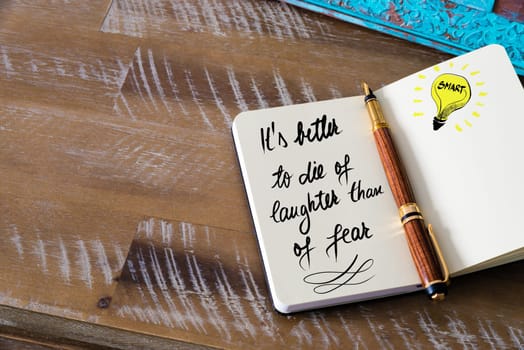 It's better
to die of
laughter than
of fear
SMART